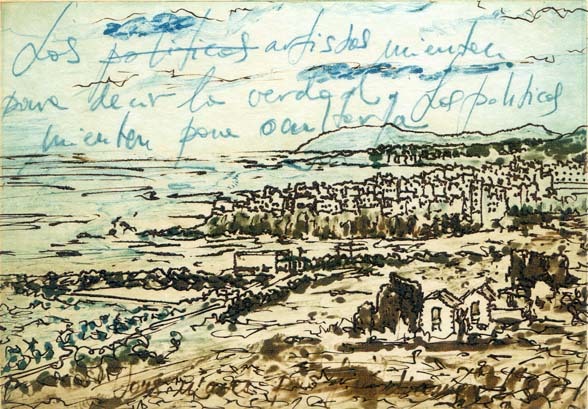 Los politicos artistas mienten
para decir la verdad y Los politicos
mienten para ocultarla